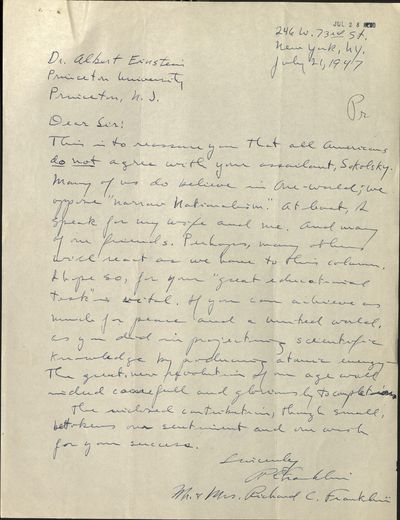 JUL 28
246 W. 73rd St.
New York, N.Y.
July 21, 1947
Dr. Albert Einstein
Princeton University
Princeton, N. J.
Dear Sir:
This is to reassure you that all Americans
do not agree with your assailant, Sokolsky.
Many of us do believe in One-world; we
oppose "narrow Nationalism." At least, I
speak for my wife and me. And many
of our friends. Perhaps, many others
will react as we have to this column.
I hope so, for your "great educational
task" is vital. If you can achieve as
much for peace and a united world,
as you did in projecting scientific
knowledge by producing atomic energy
The great, new revolution of our age will
indeed and gloriously
The enclosed contribution, though small,
betokens our sentiment and our wish
for your success.
Sincerely
R C Franklin
Mr. & Mrs. Richard C. Franklin